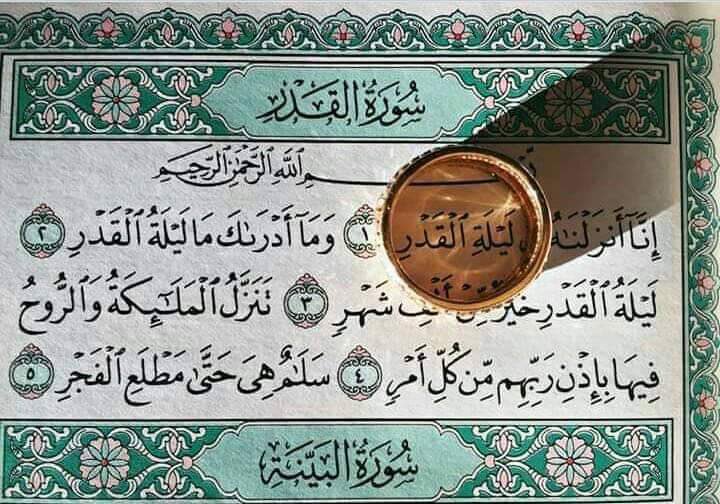 سُورَةُ القَدْرِ
ـمِ ٱللَّهِ ٱلرَّحْمَٰنِ ٱلرَّحِيمِ
إِنَّآ أَنزَلْنَٰهُ لَيْلَةِ ٱلْقَدْرِ ١ وَمَآ أَدْرَىٰكَ مَا لَيْلَةُ ٱلْقَدْرِ ٢
لَيْلَةُ ٱلْقَدْرِ خَيْرٌ مِّنْ شَهْرٍ ٣ تَنَزَّلُ ٱلْمَلَٰٓئِكَةُ وَٱلرُّوحُ
فِيهَا بِإِذْنِ رَبِّهِم مِّن كُلِّ أَمْرٍ ٤ سَلَٰمٌ هِىَ حَتَّىٰ مَطْلَعِ ٱلْفَجْرِ ٥
سُورَةُ البَيِّنَةِ